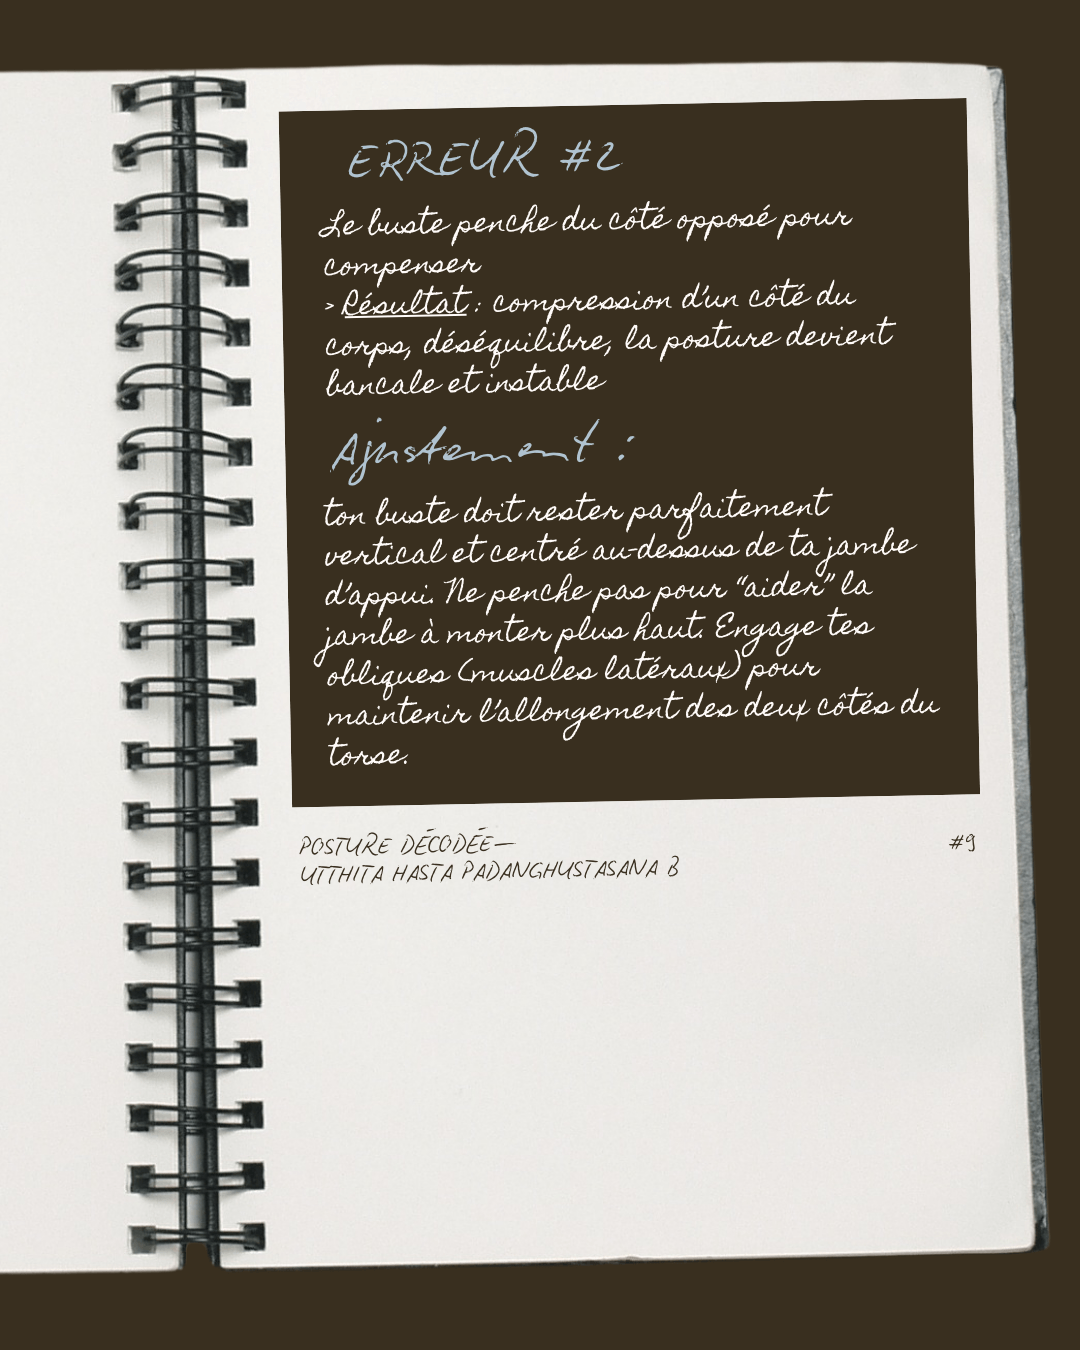 ERREUR #2
Le buste penche du côté opposé pour
compenser
> Résultat : compression d'un côté du
corps, déséquilibre, la posture devient
bancale et instable
Ajustement :
ton buste doit rester parfaitement
vertical et centré au-dessus de ta jambe
d'appui. Ne penche pas pour “aider” la
jambe à monter plus haut. Engage tes
obliques (muscles latéraux) pour
maintenir l'allongement des deux côtés du
torse.
POSTURE DÉCODÉE— #9
UTTHITA HASTA PADANGHUSTASANA B